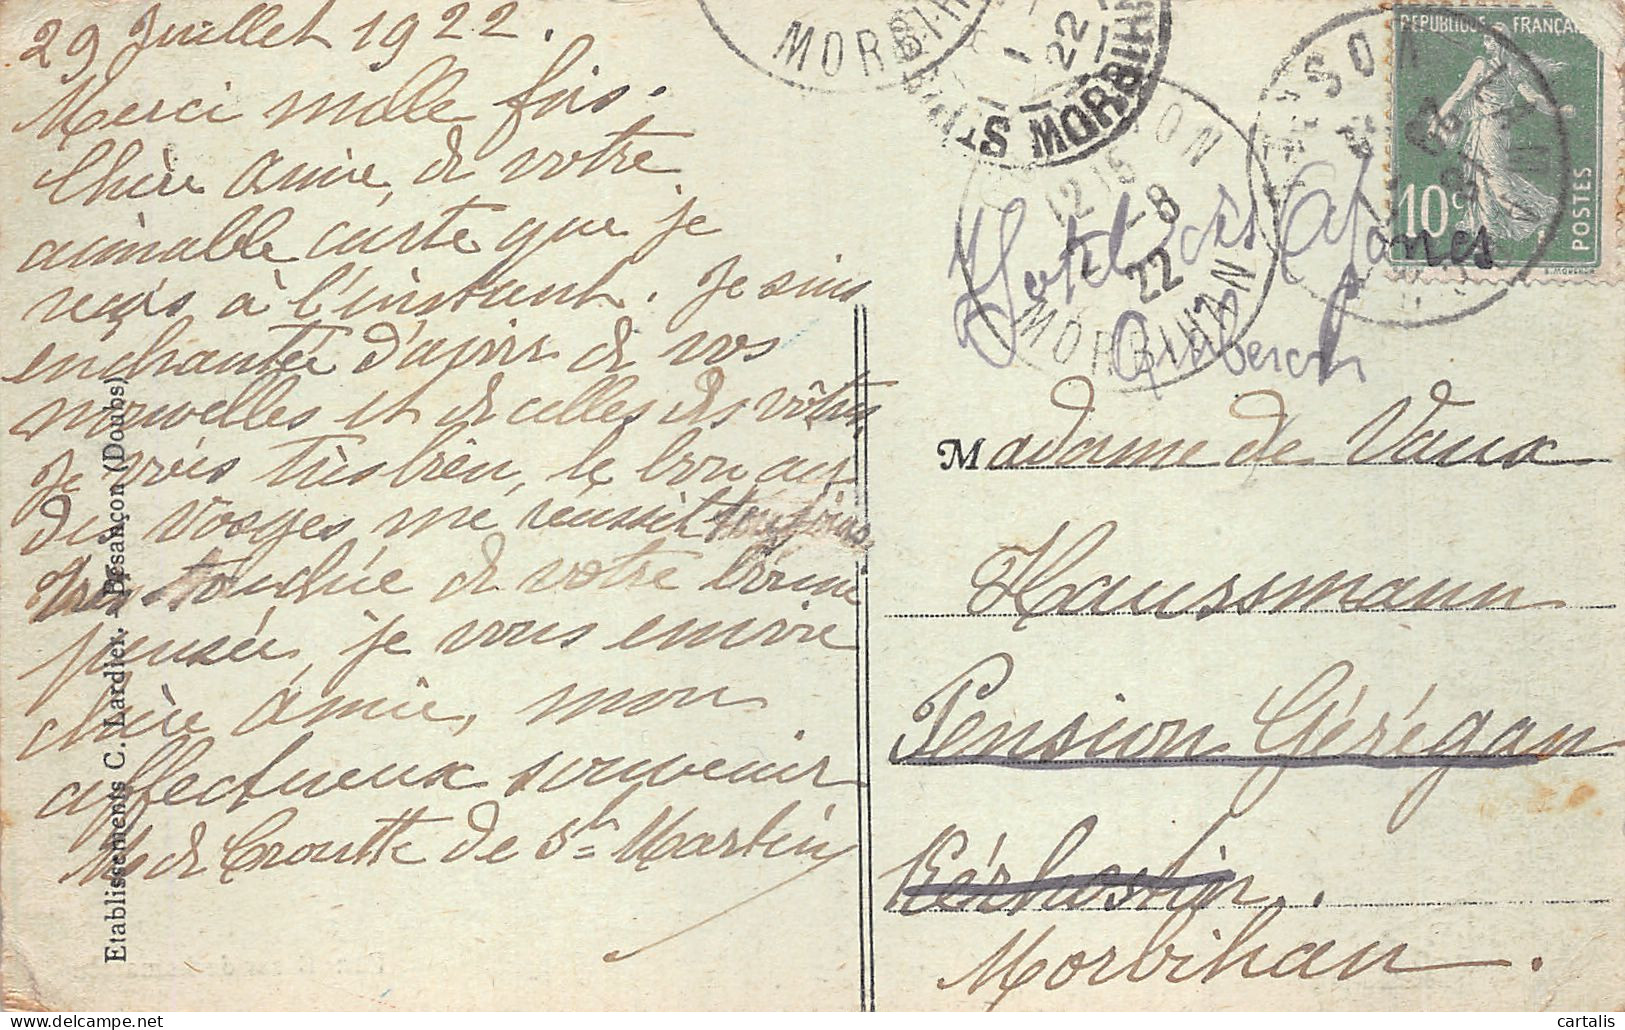 29 Juillet 1922.
Merci mille fois.
Chère amie, de votre
aimable carte que je
reçois à l'instant. Je suis
enchantée d'avoir de vos
nouvelles et de celles des vôtres,
Je vais très bien, le bon air
des Vosges me réussit toujours.
Très touchée de votre bonne
pensée, je vous envoie
chère amie, mon
affectueux souvenir
M de Croutte de St Martin
Etablissements C. Lardier. - Besançon (Doubs)
MORBIHAN
22
MORBIHAN
12 15
2 - 8
22
MORBIHAN
REPUBLIQUE FRANÇAISE
10c
POSTES
Hotel des
Quiberon
Madame de Vaux
Haussmann
Pension Gérégan
Kérhostin.
Morbihan.
cartalis
delcampe.net